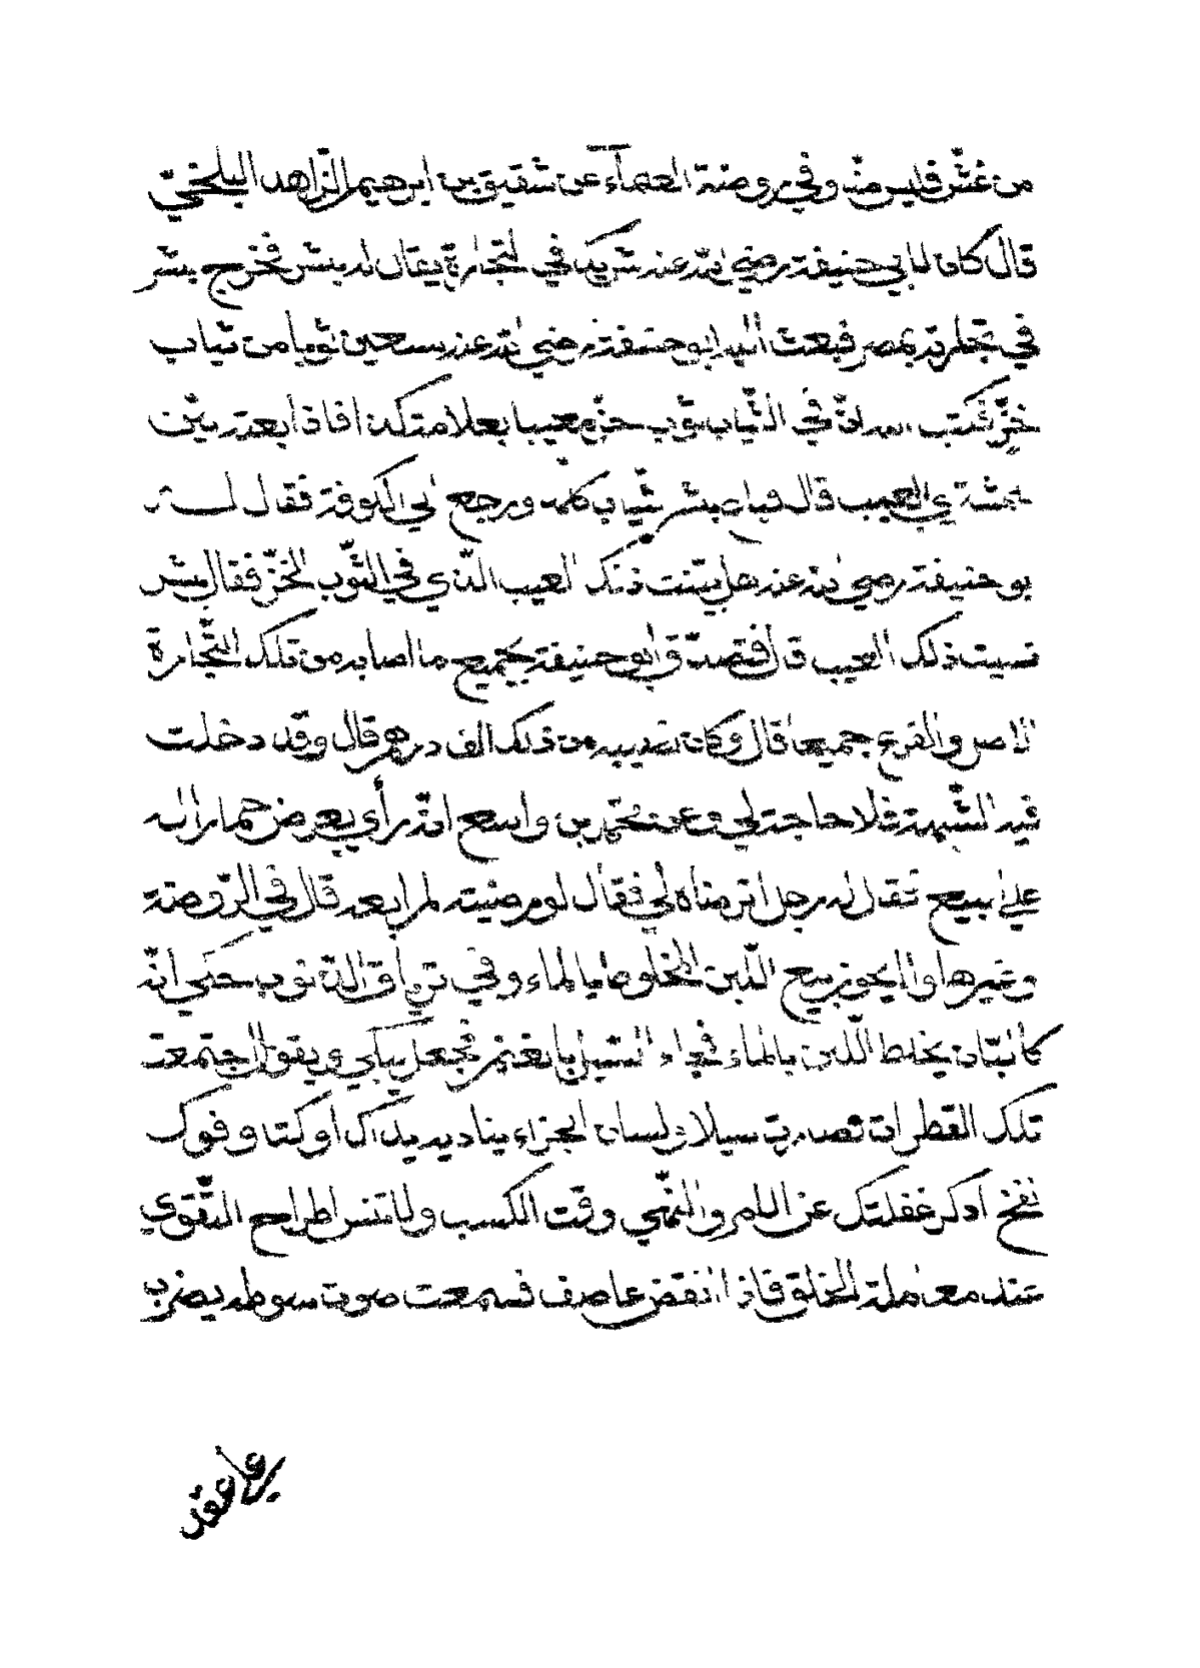 من غشّ فليس منّا وفي روضة العلمآء عن شقيق بن ابرهيم الزّاهد البلخيّ
قال كان لابي حنيفة رضي الله عنه شريك في التجارة يقال له بشر فخرج بشر
في تجارته بمصر فبعث اليه ابو حنيفة رضي الله عنه سبعين ثوبا من ثياب
خزّ فكتب اليه انّ في الثّياب ثوب خزّ معيبا بعلامة كذا فاذا بعته بيّن
للمشتري العيب قال فباع بشر ثيابه كلّها ورجع الي الكوفة فقال له
ابو حنيفة رضي الله عنه هل بيّنت ذلك العيب الّذي في الثّوب الخزّ فقال بشر
نسيت ذلك العيب قال فتصدّق ابو حنيفة بجميع ما اصابه من تلك التّجارة
الاصل والفرع جميعا قال وكان نصيبه من ذلك الف درهم قال وقد دخلت
فيه الشّبهة فلا حاجة لي وعن محمّد بن واسع انّه رأي يعرض حمارا له
علي البيع فقال له رجل اترضاه لي فقال لو رضيته لم ابعه قال في الرّوضة
وغيرها ولا يجوز بيع اللّبن المخلوط بالماء وفي ترياق الذّنوب حكي انّه
كان لبّان يخلط اللّبن بالماء فجاء السّيل بالغنم فجعل يبكي ويقول اجتمعت
تلك القطرات فصارت سيلا ولسان الجزاء يناديه يداك اوكتا وفوك
نفخ اذكر غفلتك عن اللوم والنّهي وقت الكسب ولا تنس اطراح التّقوي
عند معاملة الخلق فاذا انقض عاصف فسمعت صوت سوطه يضرب